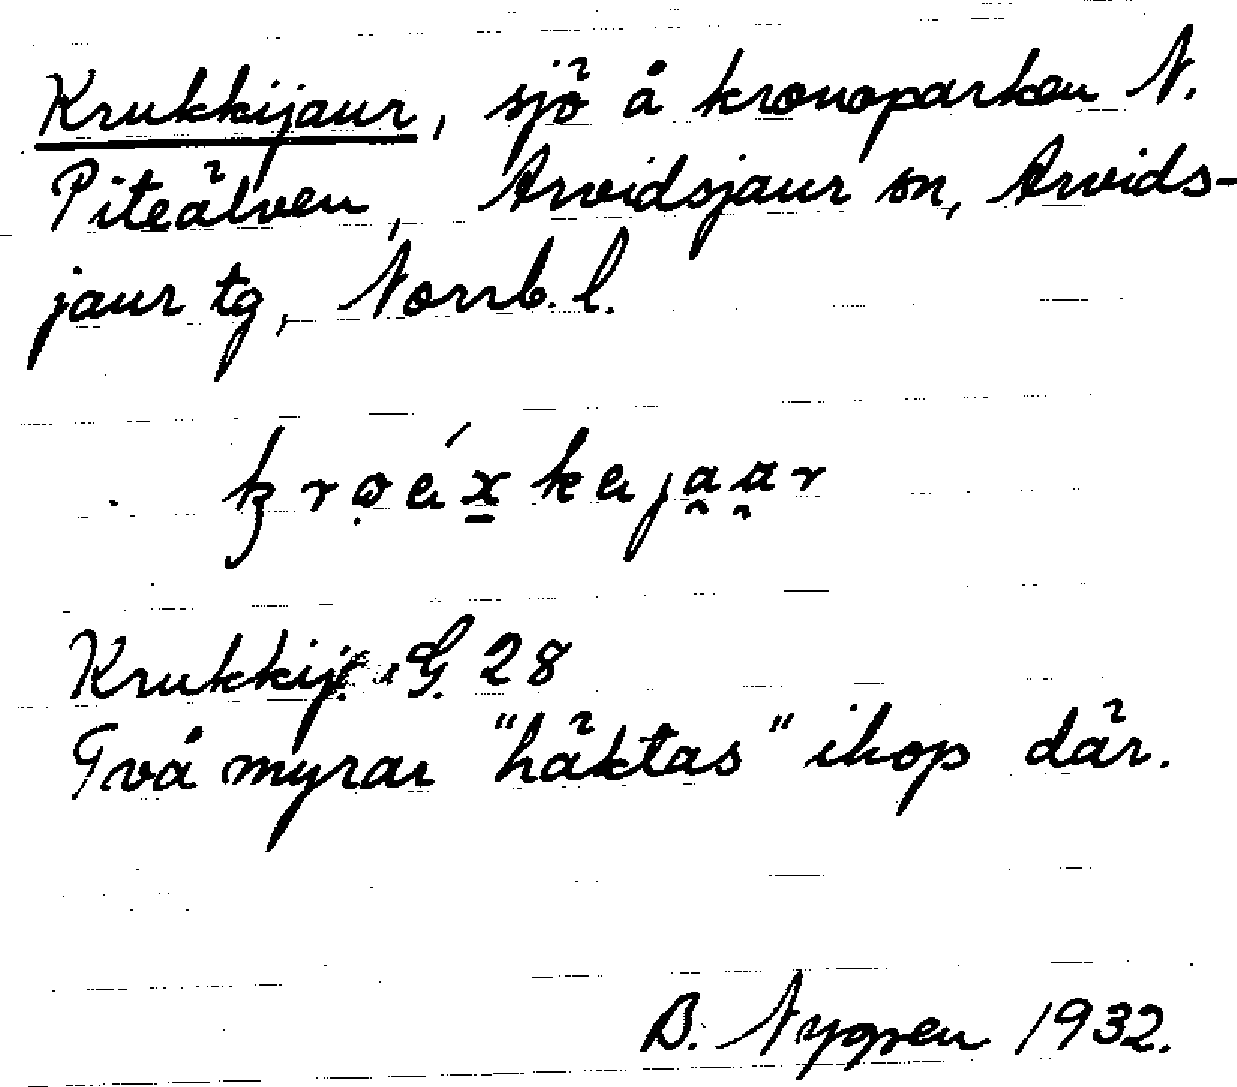 Krukkijaur, sjö å kronoparken N.
Piteälven, Arvidsjaur sn, Arvids-
jaur tg, Norrb. l.
Krukkij. G. 28
Två myrar "häktas" ihop där.
B. Nygren 1932.